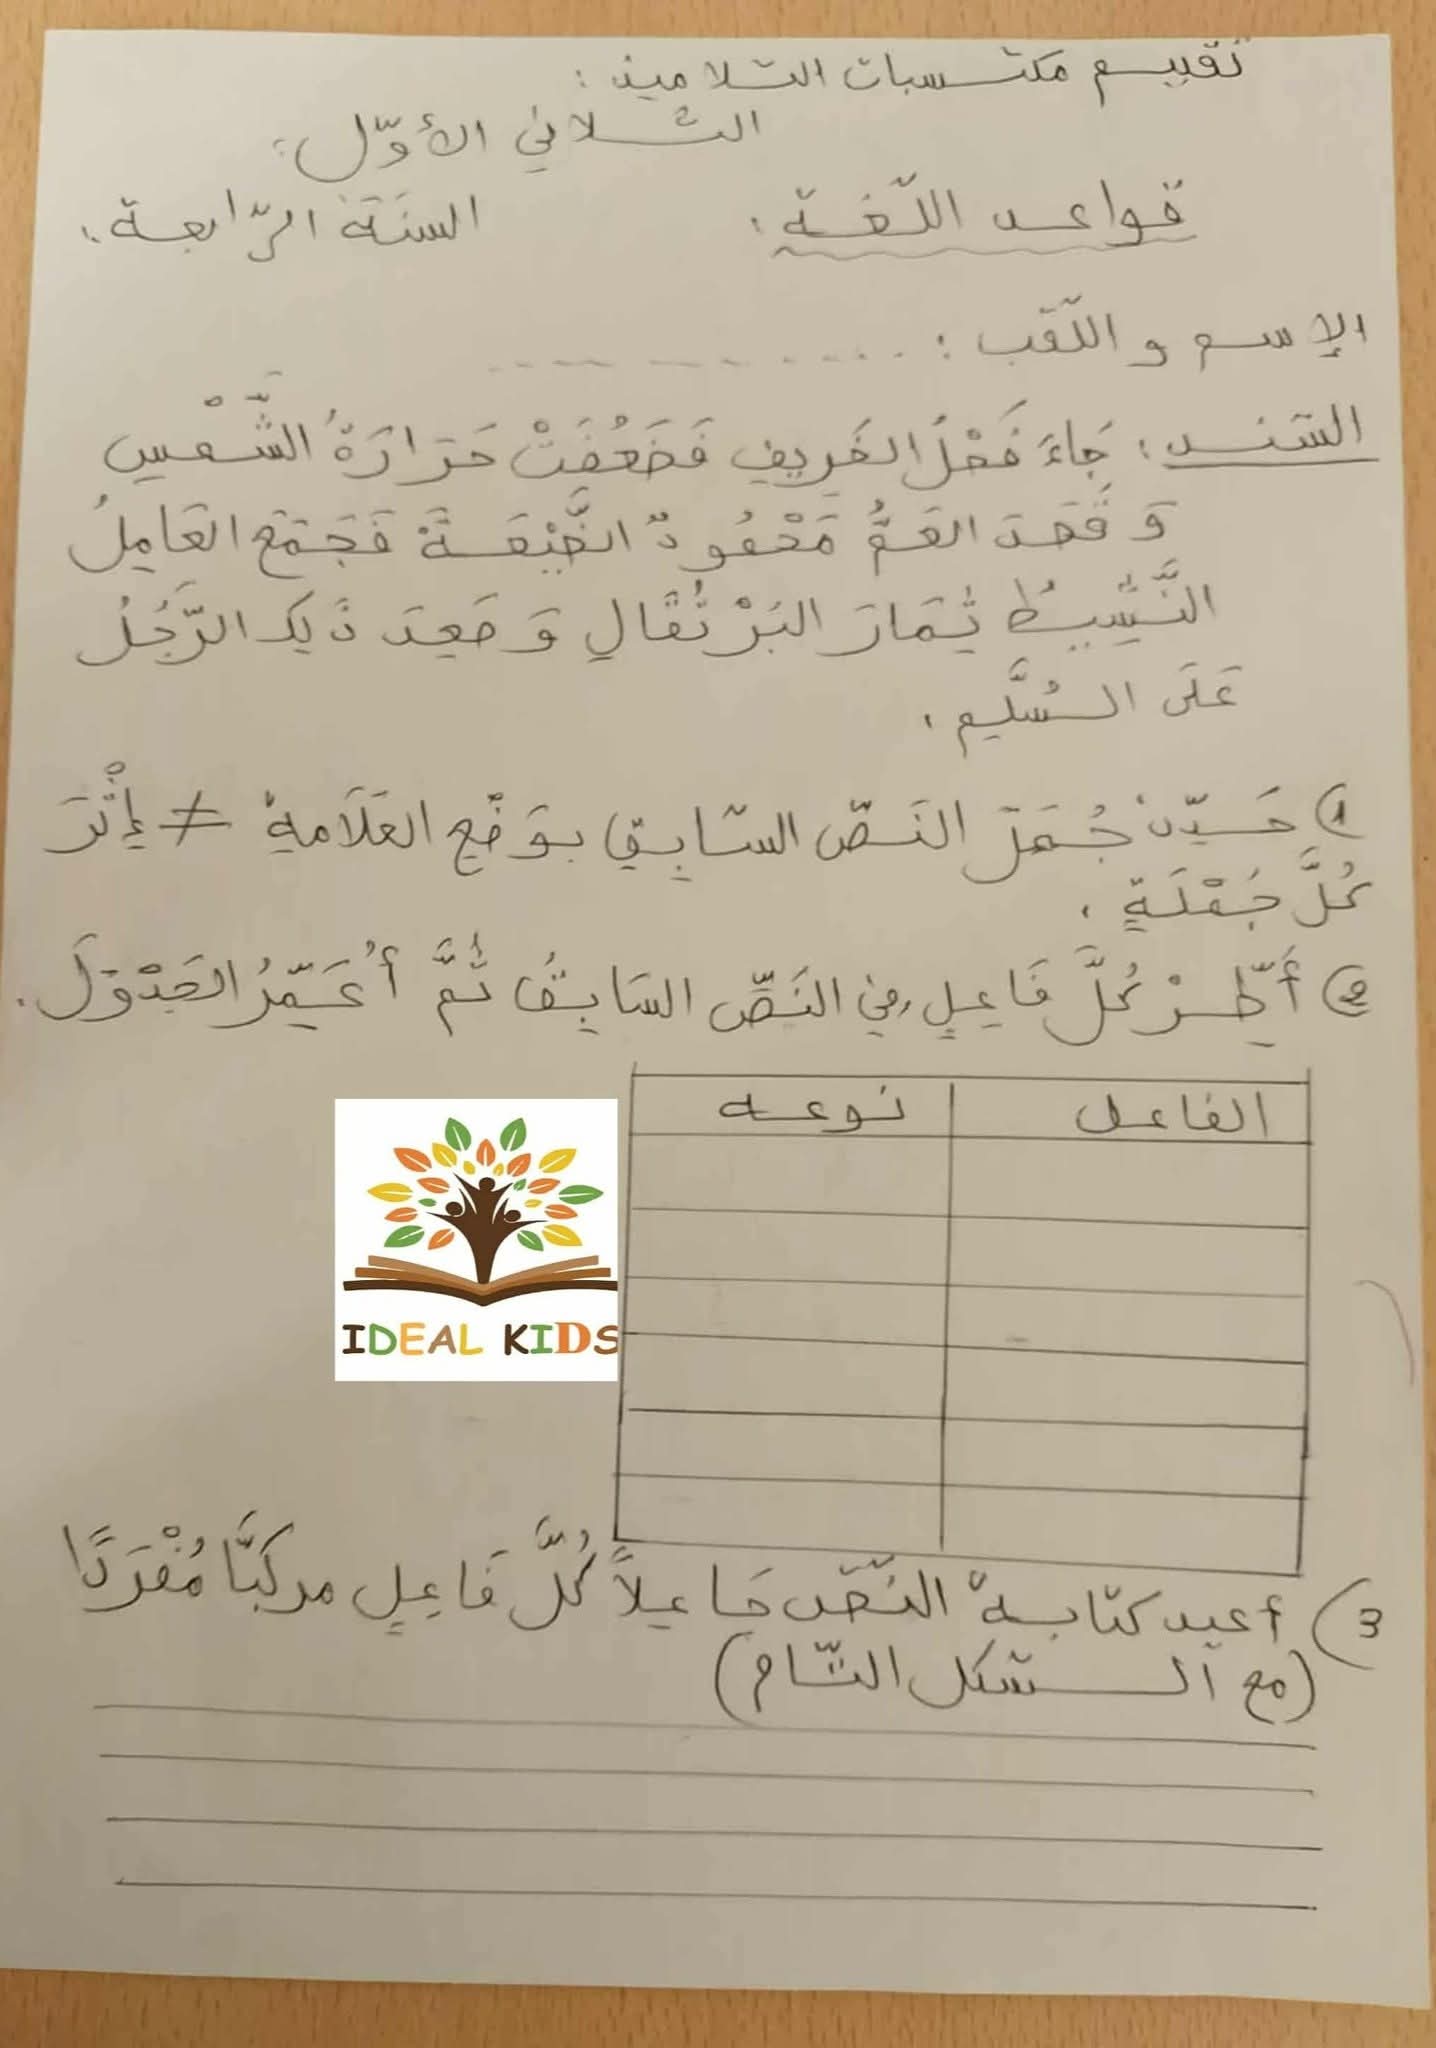 تقييم مكتسبات التلاميذ :
الثلاثي الأوّل :
قواعد اللّغة : السنة الرّابعة :
الإسم و اللّقب : ..........
السّند : جَاءَ فَصْلُ الخَرِيفِ فَضَعُفَتْ حَرَارَةُ الشَّمْسِ
وَ قَصَدَ العَمُّ مَحْمُودٌ الضَّيْعَةَ فَجَمَعَ العَامِلُ
النَّشِيطُ ثِمَارَ البُرْتُقَالِ وَ صَعِدَ ذَلِكَ الرَّجُلُ
عَلَى السُّلَّمِ .
1) حَدِّدْ جُمَلَ النَصّ السّابِقِ بوَضْعِ العَلَامةِ ≠ إِثْرَ
كُلَّ جُمْلَةٍ .
2) أُطِّرْ كُلَّ فَاعِلٍ فِي النَصِّ السَابِقُ ثُمَّ أُعَمِّرُ الجَدْوَلَ .
الفاعل نوعه
IDEAL KIDS
3) أعيد كتابة النّصّ جَاعِلاً كُلَّ فَاعِلٍ مركبًّا مُفْرَدًا
(مع الشكل التّام)